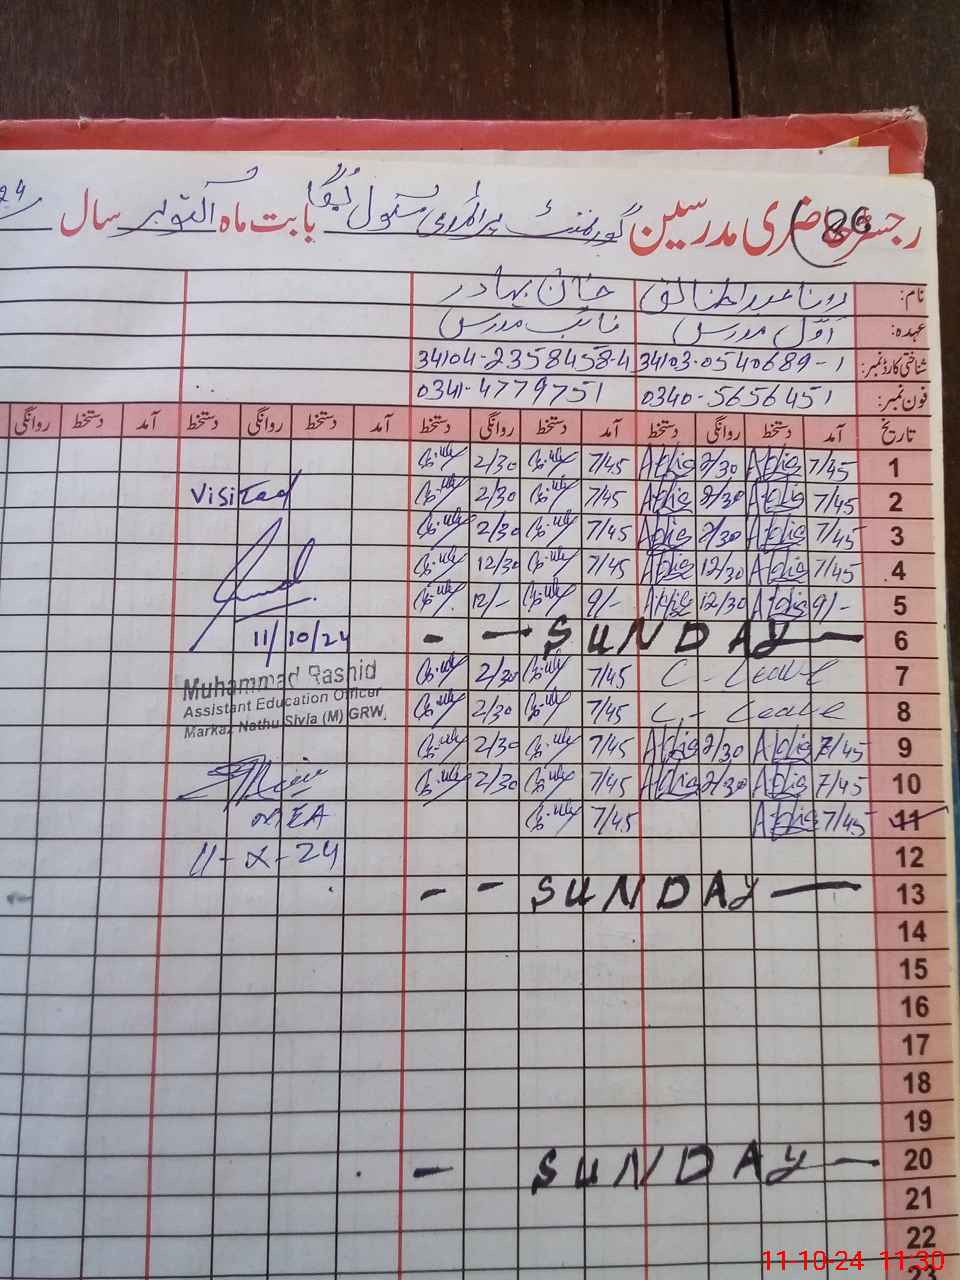 رجسٹر حاضری مدرسین گورنمنٹ پرائمری سکول بابت ماہ اکتوبر سال 24
(86
نام: رانا عبدالخالق خان بہادر
عہدہ: اول مدرس نائب مدرس
شناختی کارڈ نمبر: 34103-0540689-1 34104-2358458-4
فون نمبر: 0340-5656451 0341-4779751
تاریخ آمد دستخط روانگی دستخط آمد دستخط روانگی دستخط آمد دستخط روانگی دستخط آمد دستخط روانگی
1 7/45 2/30 7/45 2/30
2 7/45 2/30 7/45 2/30 Visited
3 7/45 2/30 7/45 2/30
4 7/45 12/30 7/45 12/30
5 9/- 12/30 9/- 12/-
6 - — SUNDAY — 11/10/24
7 C - Leave 7/45 2/30 Muhammad Rashid
Assistant Education Officer
8 C - Leave 7/45 2/30 Markaz Nathu Sivia (M) GRW.
9 7/45 2/30 7/45 2/30
10 7/45 2/30 7/45 2/30
11 7/45 7/45 MEA
12 11-X-24
13 - - SUNDAY —
14
15
16
17
18
19
20 - SUNDAY —
21
22
23
11-10-24 11:30